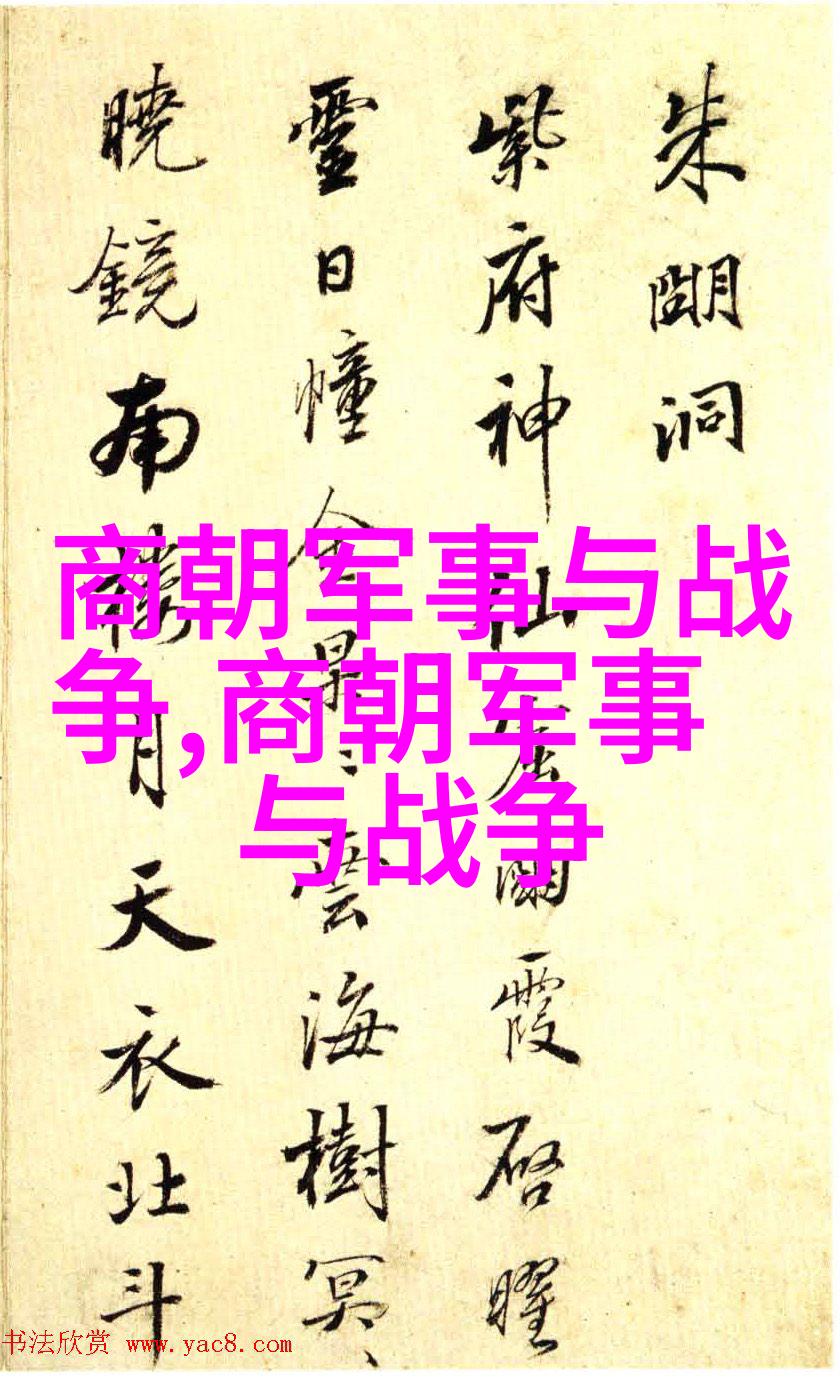 朱朙洞
紫府神仙霞啓曜
靈日幢金杲〻雲海樹冥〻
曉鏡南樓月天衣北斗
商朝军事与战
争,商朝军事
与战争
书法欣赏 www.yac8.com